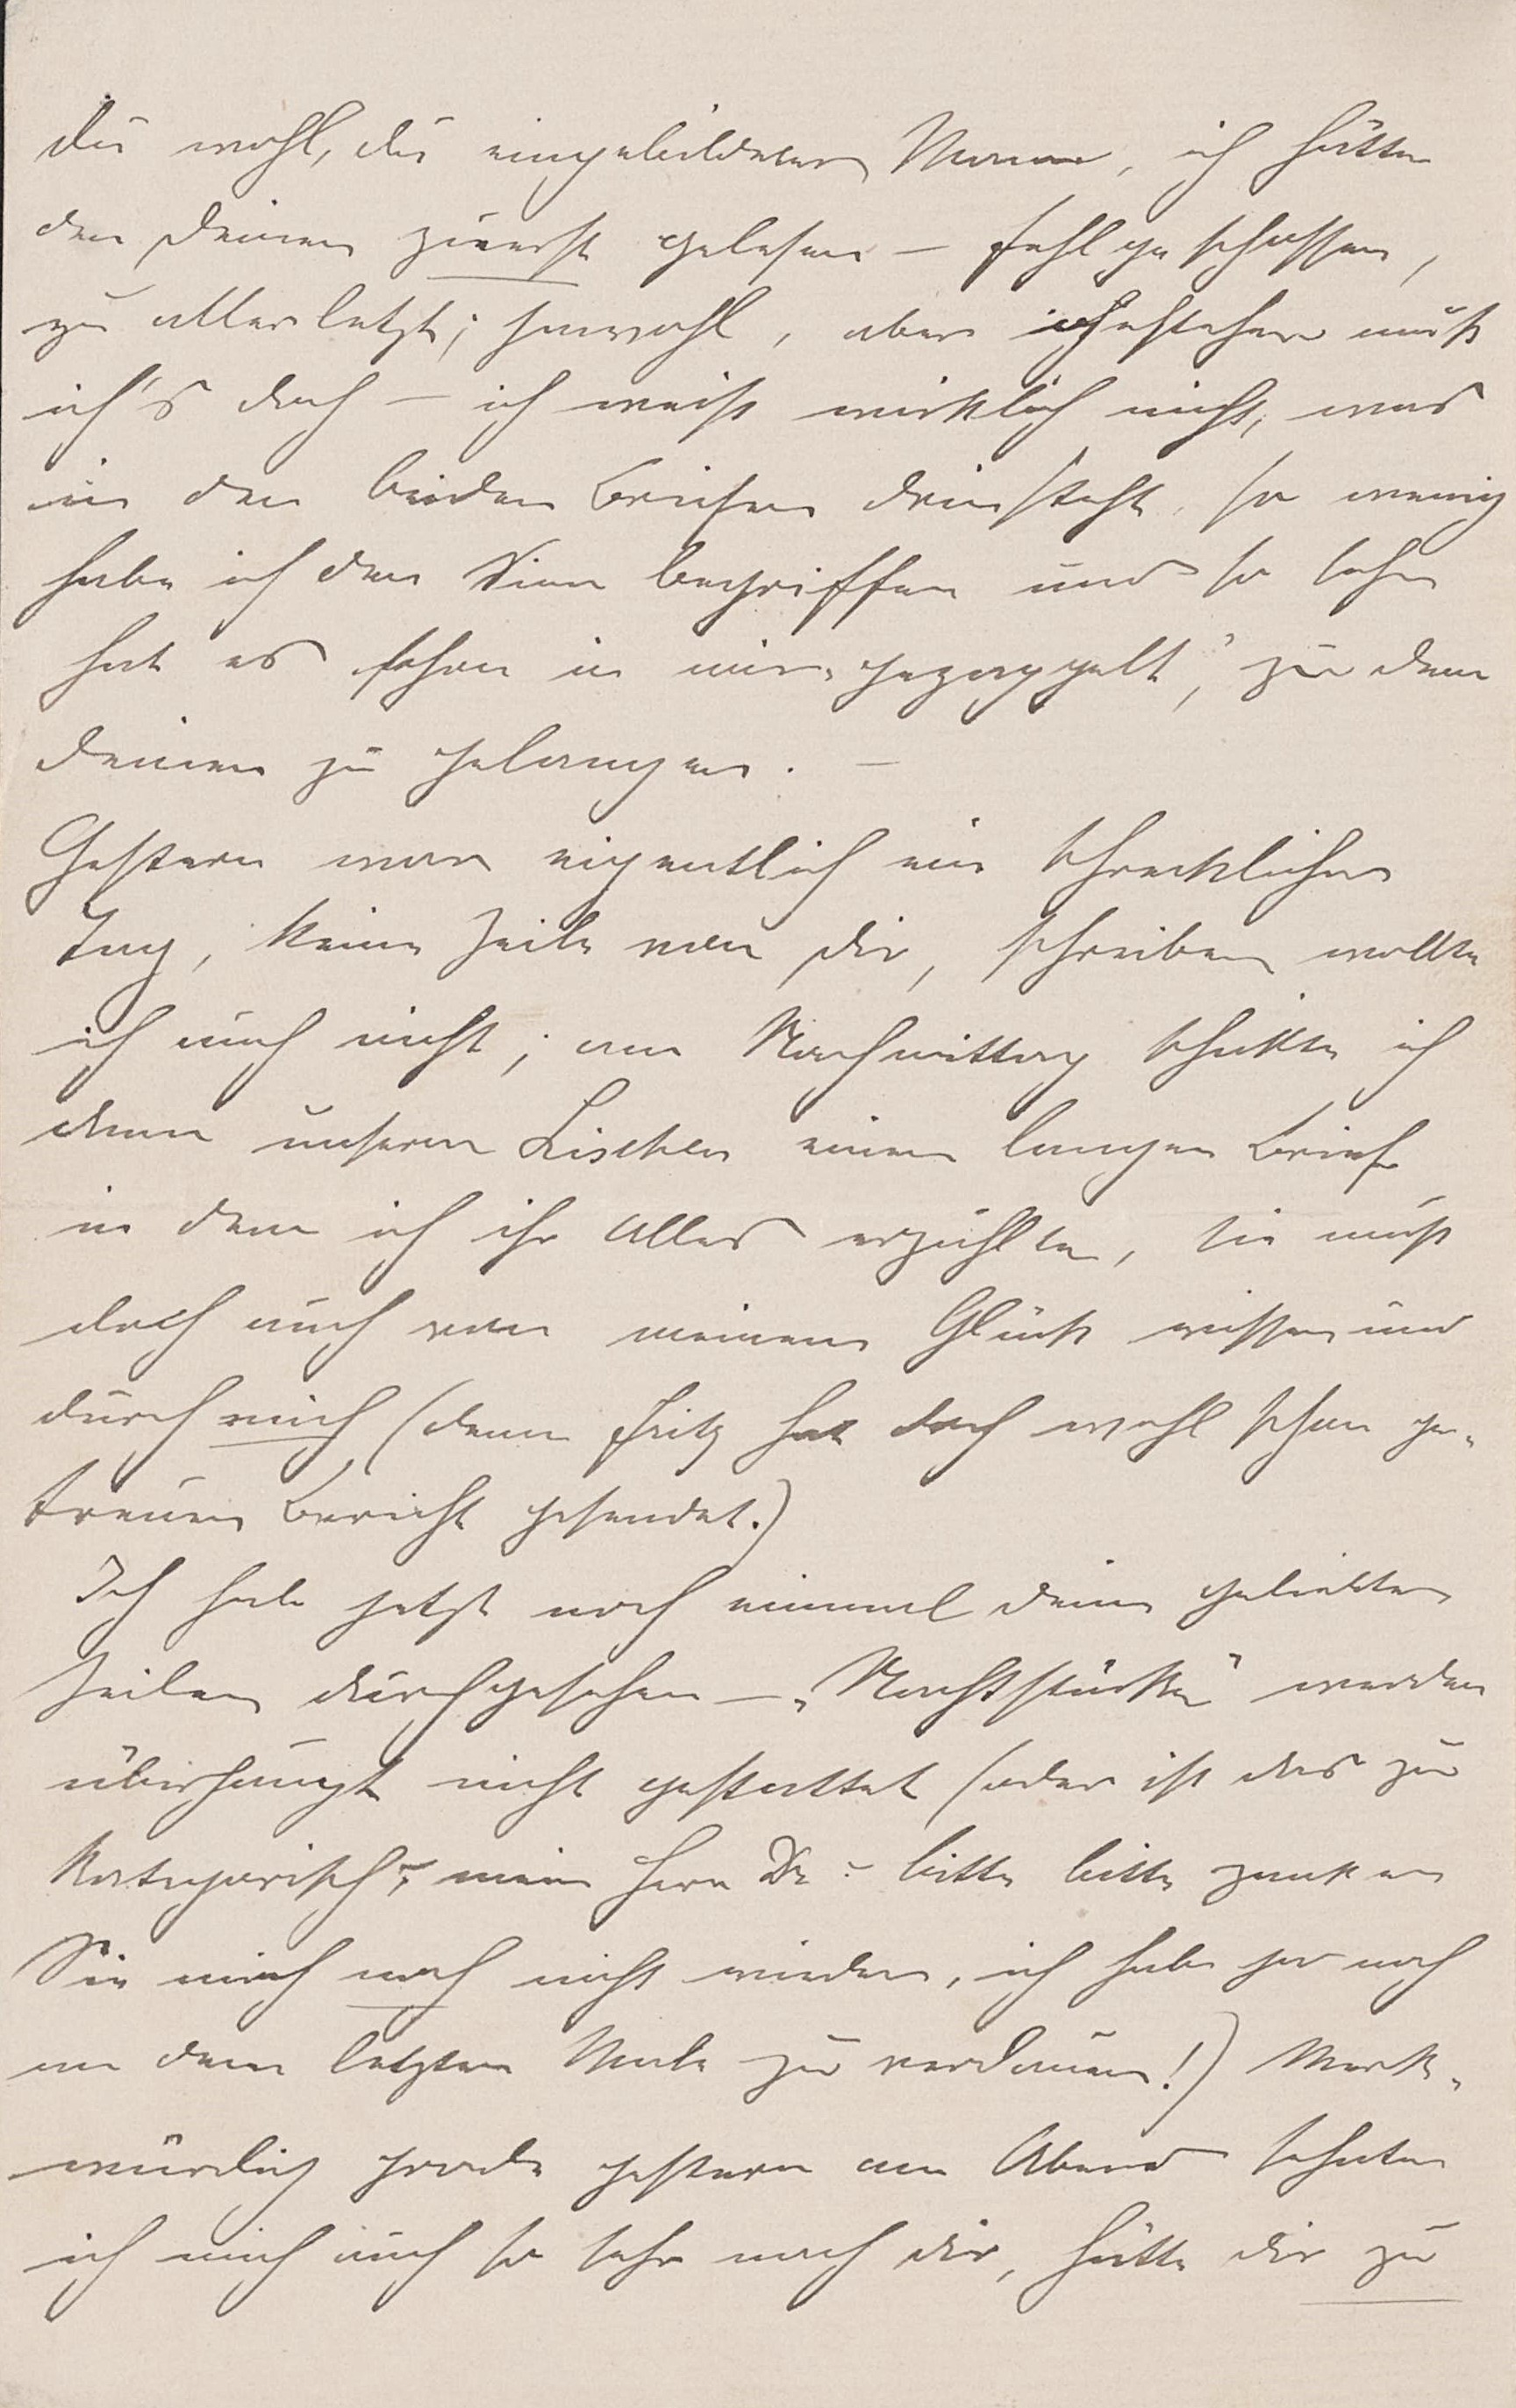 du wohl, du eingebildeter Mann, ich hätte
den Deinen zuerst gelesen – fehlgeschossen,
zu allerletzt; jawohl, aber gestehen muß
ich's doch – ich weiß wirklich nicht, was
in den beiden Briefen drinsteht, so wenig
habe ich den Sinn begriffen und so sehr
hat es schon in mir gezappelt, zu dem
Deinen zu gelangen. –
Gestern war eigentlich ein schrecklicher
Tag, keine Zeile von dir, schreiben wollte
ich auch nicht; am Nachmittag schickte ich
dann unserm Lischen einen langen Brief,
in dem ich ihr Alles erzählte, sie muß
doch auch von meinem Glück wissen und
durch mich (denn Fritz hat doch wohl schon ge-
treuen Bericht gesendet.)
Ich habe jetzt noch einmal deine geliebten
Zeilen durchgesehen – „Nachtstücke" werden
überhaupt nicht gestattet (oder ist das zu
kategorisch, mein Herr Dr? bitte bitte zanken
Sie mich noch nicht wieder, ich habe ja noch
an dem letzten Male zu verdauen!) Merk-
würdig grade gestern am Abend sehnte
ich mich auch so sehr nach dir, hätte dir zu